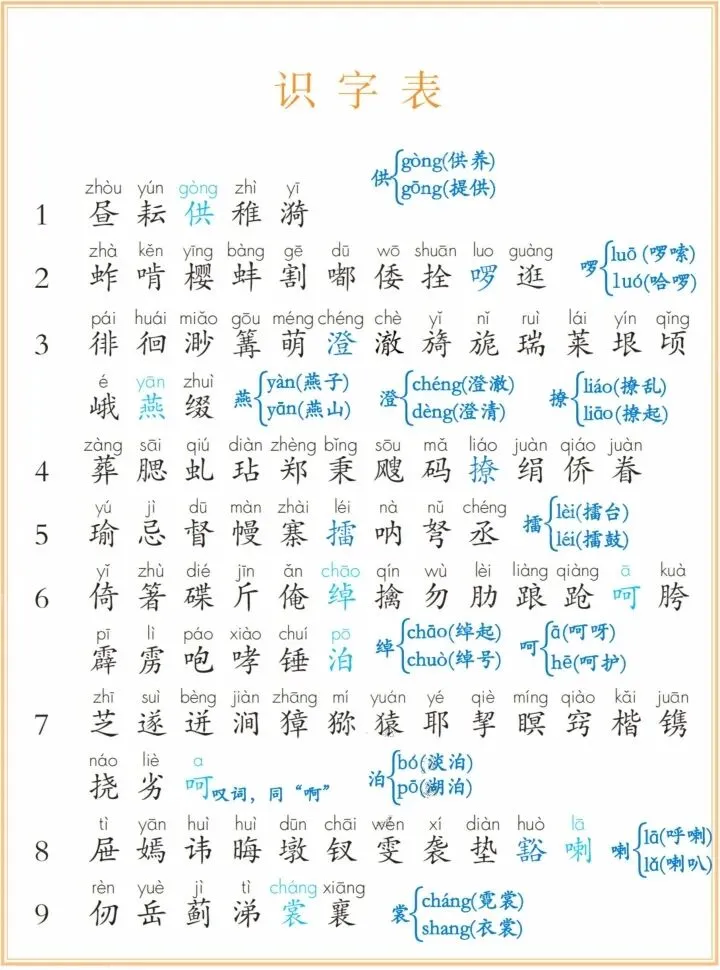 识字表
供 gòng(供养)
gōng(提供)
zhòu yún gòng zhì yī
1 昼 耘 供 稚 漪
zhà kěn yīng bàng gē dū wō shuān luo guàng
2 蚱 啃 樱 蚌 割 嘟 倭 拴 啰 逛
啰 luō (啰嗦)
luó(哈啰)
pái huái miǎo gōu méng chéng chè yǐ nǐ ruì lái yín qǐng
3 徘 徊 渺 篝 萌 澄 澈 旖 旎 瑞 莱 垠 顷
é yān zhuì
峨 燕 缀
燕 yàn(燕子)
yān(燕山)
澄 chéng(澄澈)
dèng(澄清)
撩 liáo(撩乱)
liāo(撩起)
zàng sāi qiú diàn zhèng bǐng sōu mǎ liáo juàn qiáo juàn
4 葬 腮 虬 玷 郑 秉 飕 码 撩 绢 侨 眷
yú jì dū màn zhài léi nà nǔ chéng
5 瑜 忌 督 幔 寨 擂 呐 弩 丞
擂 lèi(擂台)
léi(擂鼓)
yǐ zhù dié jīn ǎn chāo qín wù lèi liàng qiàng ā kuà
6 倚 箸 碟 斤 俺 绰 擒 勿 肋 踉 跄 呵 胯
pī lì páo xiào chuí pō
霹 雳 咆 哮 锤 泊
绰 chāo(绰起)
chuò(绰号)
呵 ā(呵呀)
hē(呵护)
zhī suì bèng jiàn zhāng mí yuán yé qiè míng qiào kǎi juān
7 芝 遂 迸 涧 獐 猕 猿 耶 挈 瞑 窍 楷 镌
náo liè a
挠 劣 呵 叹词，同“啊”
泊 bó(淡泊)
pō(湖泊)
tì yān huì huì dūn chāi wén xí diàn huò lā
8 屉 嫣 讳 晦 墩 钗 雯 袭 垫 豁 喇
喇 lā(呼喇)
lǎ(喇叭)
rèn yuè jì tì cháng xiāng
9 仞 岳 蓟 涕 裳 襄
裳 cháng(霓裳)
shang(衣裳)